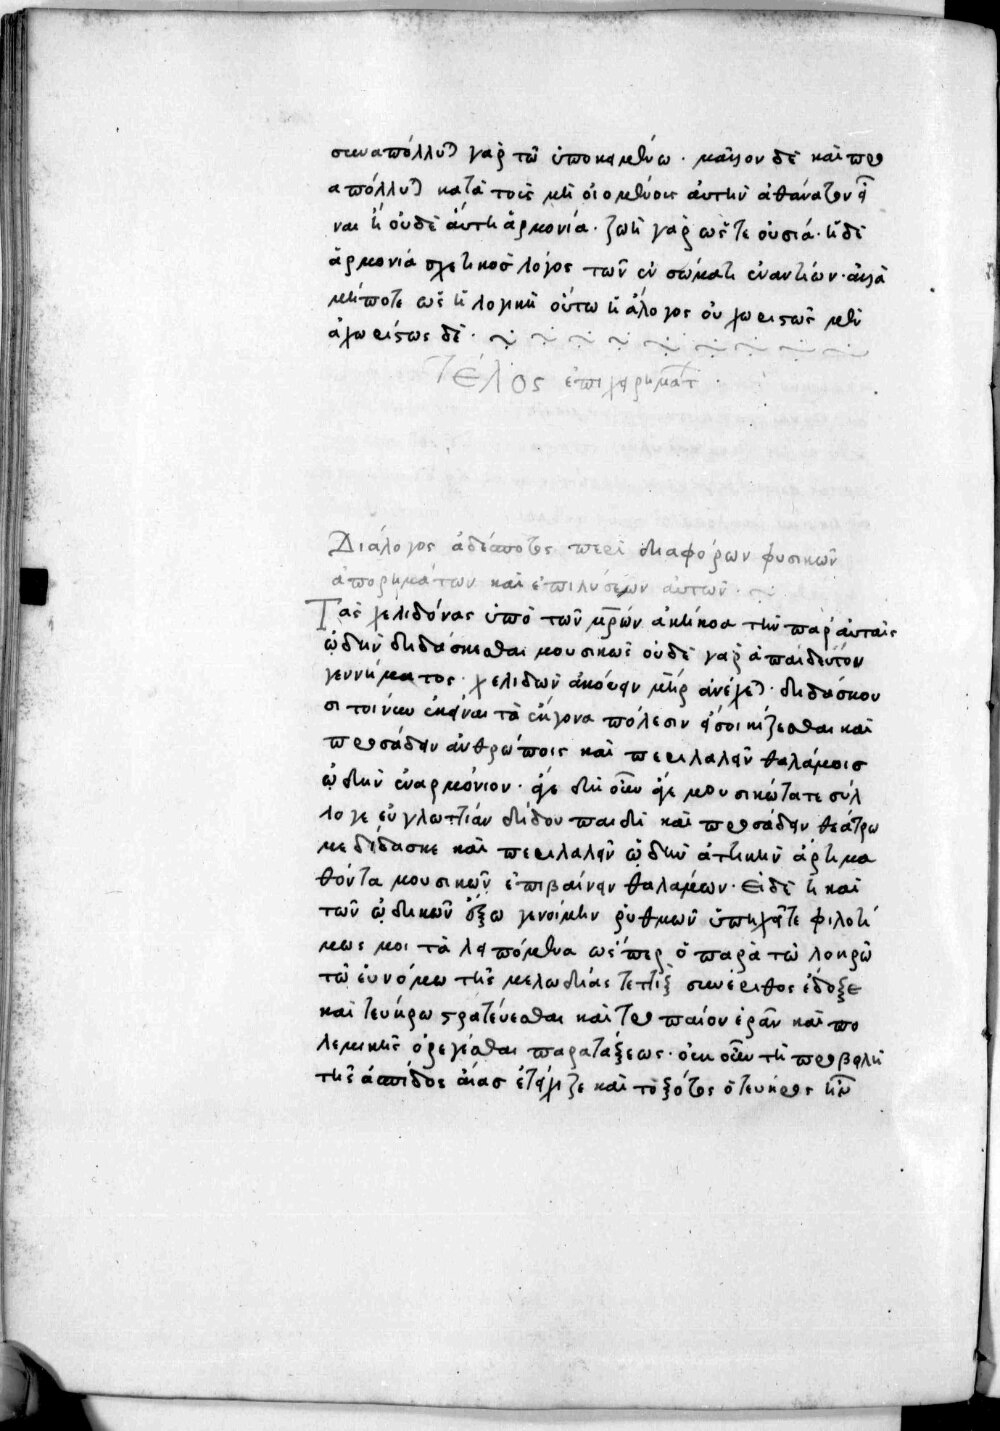 συναπόλλυται γὰρ τῶ ὑποκειμένω · μᾶλλον δὲ καὶ προ
απόλλυται κατὰ τοὺς μὴ οἰομένους ἀυτὴν ἀθάνατον εἶ
ναι ἢ οὐδὲ ἀυτὴ ἁρμονία · ζωὴ γὰρ ὥς τε οὐσία · ἡ δὲ
ἁρμονία σχετικὸς λόγος τῶν ἐν σώματι ἐναντίων · ἀλλὰ
μήποτε ὡς ἡ λογικὴ οὕτω ἡ ἄλογος οὐ χωριστῶς μὲν
ἀχωρίστως δέ ·
Τέλος ἐπιχειρημάτ
Διάλογος ἀδέσποτος περὶ διαφόρων φυσικῶν
ἀπορημάτων καὶ ἐπιλύσεων ἀυτῶν ·
Τὰς χελιδόνας ὑπὸ τῶν μητέρων ἀκήκοα τὴν παρ' ἀυταῖς
ὠδὴν διδάσκεσθαι μουσικῶς οὐδὲ γὰρ ἀπαιδεύτου
γεννήματος · χελιδὼν ἀκούειν μήτηρ ἀνέχεται · διδάσκου
σι τοίνυν ἐκεῖναι τὰ ἔκγονα πόλεσιν εἰσοικίζεσθαι καὶ
προσάδειν ἀνθρώποις καὶ περιλαλεῖν θαλάμοις
ὠδὴν ἐναρμόνιον · ἄγε δὴ οὖν ἄγε μουσικώτατε σύλ
λογε εὐγλωττίαν δίδου παιδὶ καὶ προσάδειν θεάτρω
με δίδασκε καὶ περιλαλεῖν ὠδὴν ἀττικὴν ἄρτι μα
θόντα μουσικῶν ἐπιβαίνειν θαλάμων · εἰ δέ τι καὶ
τῶν ὠδικῶν ἔξω γενοίμην ῥυθμῶν ὑπηχεῖτε φιλοτί
μως μοι τὰ λειπόμενα ὥσπερ ὁ παρὰ τῶ λοκρῶ
τῶ ἐυνόμω τῆς μελωδίας τέττιξ συνέριθος ἔδοξε
καὶ τεύκρω στρατεύεσθαι καὶ τροπαίων ἐρᾶν καὶ πο
λεμικῆς ὀρέγεσθαι παρατάξεως · οὐκοῦν τῆ προβολῆ
τῆς ἀσπίδος αἴας ἐτείχιζε καὶ τοξότης ὁ τεῦκρος ἦν